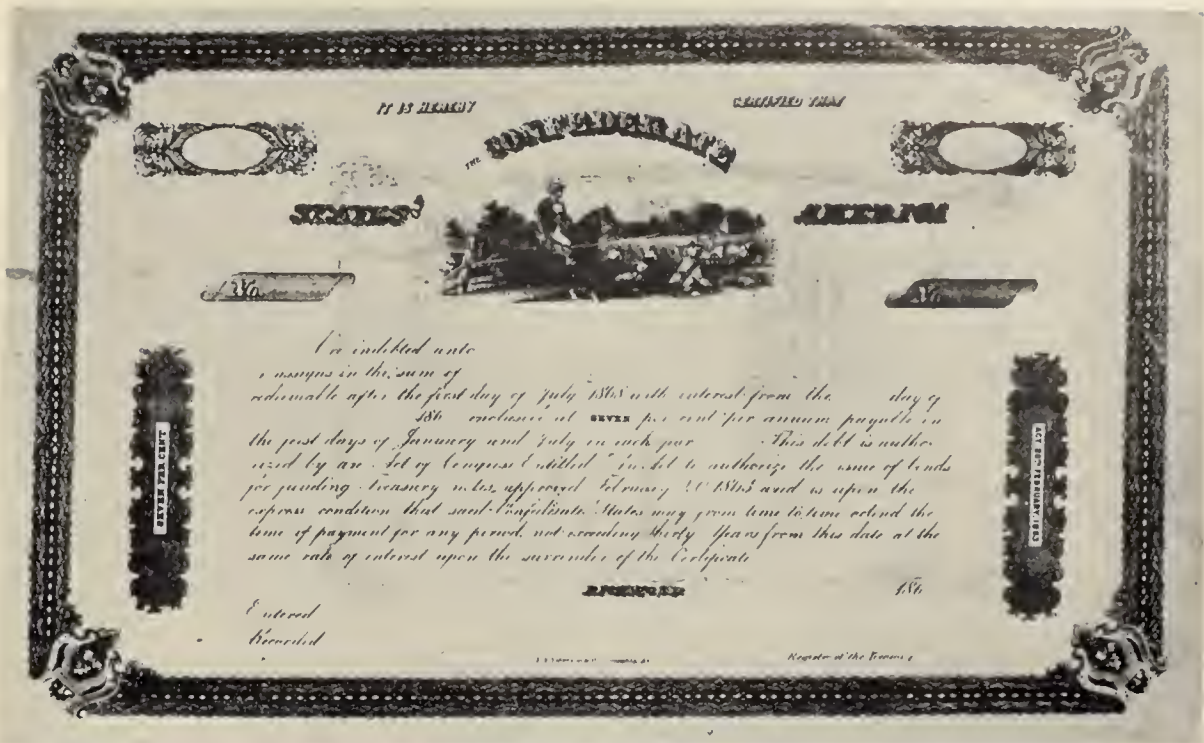 IT IS HEREBY CERTIFIED THAT
THE CONFEDERATE
STATES OF AMERICA
No No
indebted unto
assigns in the sum of
redeemable after the first day of July 1868 with interest from the day of
186 inclusive at SEVEN per cent per annum payable in
the first days of January and July in each year This debt is autho-
rized by an Act of Congress Entitled "An Act to authorize the issue of bonds
for funding Treasury notes, approved February 20 1863 and is upon the
express condition that said Confederate States may from time to time extend the
time of payment for any period, not exceeding thirty Years from this date at the
same rate of interest upon the surrender of the Certificate
186
Entered
Recorded
Register of the Treasury
SEVEN PER CENT
ACT 20TH FEBRUARY, 1863